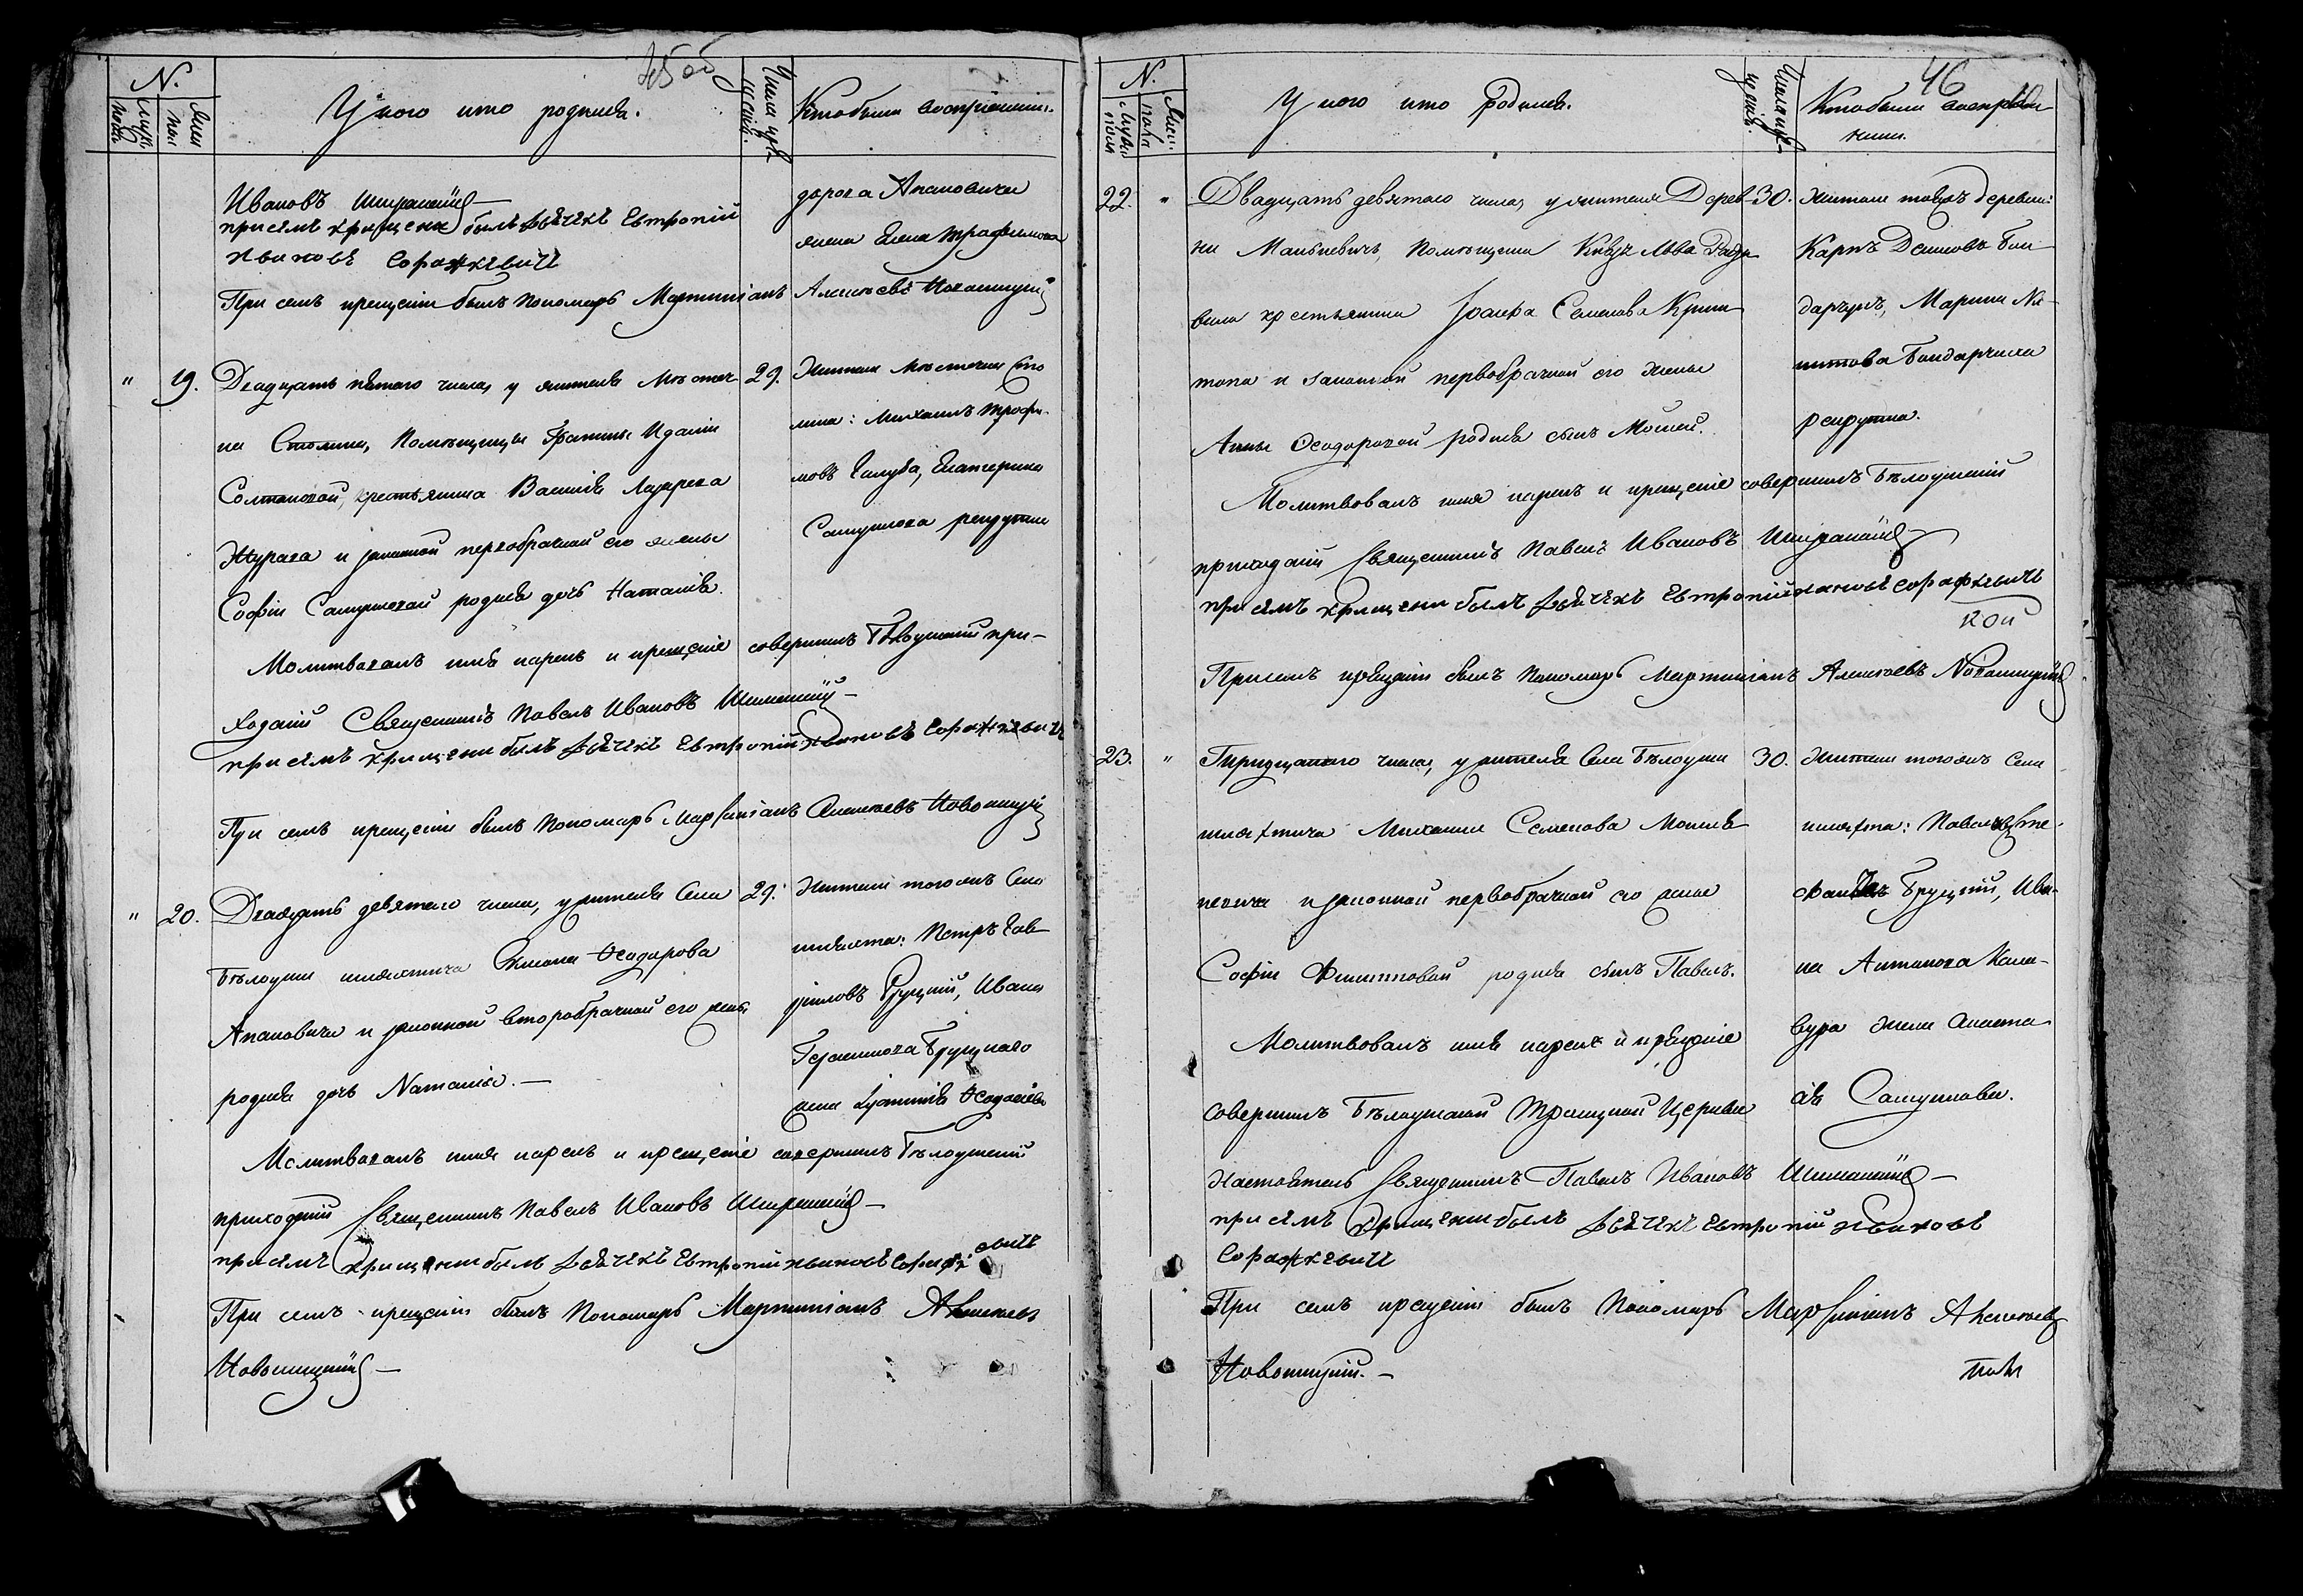 45об
N.
Муж: пола
Жен: пола
У кого кто родился.
Числа кре-
щенія.
Кто были воспріемни:
Ивановъ
при семъ крещени былъ дьячекъ Евтропій
Ивановъ Сорожкевичъ
При семъ крещеніи былъ Пономарь Мартиніанъ Алексѣевъ Новомицкій
дорова Апановича
жена Елена Трофимова
" 19. Двадцать пятаго числа, у жителя Мѣстеч-
ка Столина, Помѣщицы Графини Идаліи
Солтановой, крестьянина Василія Лазарева
Журава и законной первобрачной его жены
Софіи родися дочь Наталія.
29. Жители Мѣстечка Сто
лина: Михаилъ Трофи-
мовъ Голуба, Екатерина
рекрутка
Молитвовалъ имя нарекъ и крещеніе совершилъ Бѣлоушскій при-
ходскій Священникъ Павелъ Ивановъ
при семъ крищени былъ дьячекъ Евтропій Ивановъ Сорожкевичъ
При семъ крещеніи былъ Пономарь Мартиніанъ Алексѣевъ Новомицкій
" 20. Двадцать девятаго числа, у жителя Села
Бѣлоуши шляхтича Ѳеодорова
Апановича и законной второбрачной его жены
родися дочь Наталія. —
29. Жители тогожъ Села
шляхта: Петръ Гав-
риловъ Бруцкій, Ивана
Герасимова Бруцкаго
жена
Молитвовалъ имя нарекъ и крещеніе совершилъ Бѣлоушскій
приходскій Священникъ Павелъ Ивановъ
при семъ крищени былъ дьячекъ Евтропій Ивановъ Сорожкевичъ
При семъ крещеніи былъ Пономарь Мартиніанъ Алексѣевъ
Новомицкій —
46
N.
Муже: пола
Жен: пола
У кого кто родился.
Числа кре-
щенія.
Кто были воспріем
ники.
22. " Двадцать девятаго числа, у жителя Дерев-
ни Манькевичъ, Помѣщика Князя Льва Радзи
вила крестьянина Іосифа Семенова
и законной первобрачной его жены
Анны Ѳеодоровой родися сынъ Моисей.
30. Жители тойжъ деревни:
Карпъ Бон-
дарчукъ, Марина Ни-
китова Бондарчика
рекрутка.
Молитвовалъ имя нарекъ и крещеніе совершилъ Бѣлоушскій
приходскій Священникъ Павелъ Ивановъ
при семъ крищени былъ дьячекъ Евтропій Ивановъ Сорожкевичъ
При семъ крещеніи былъ Пономарь Мартиніанъ Алексѣевъ Новомицкій
23. " Тридцатаго числа, у жителя Села Бѣлоуши
шляхтича Михаила Семенова
и законной первобрачной его жены
Софіи Филипповой родися сынъ Павелъ.
30. Жители тогожъ Села
шляхта: Павелъ Сте-
фановъ Бруцкій, Ива-
на Антонова Кала-
вура жена Анаста-
сія
Молитвовалъ имя нарекъ и крещеніе
совершилъ Бѣлоушской Троицкой Церкви
Настоятель Священникъ Павелъ Ивановъ
при семъ крищени былъ дьячекъ Евтропій Ивановъ
Сорожкевичъ
При семъ крещеніи былъ Пономарь Мартиніанъ Алексѣевъ
Новомицкій. —